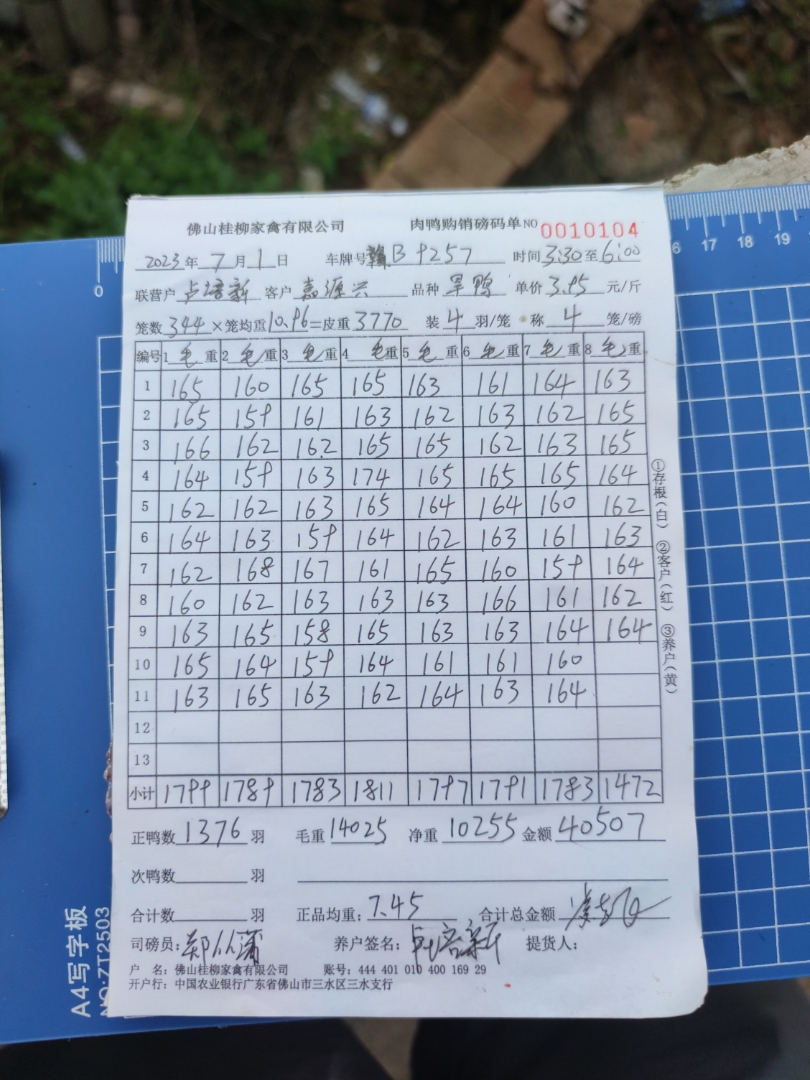 佛山桂柳家禽有限公司 肉鸭购销磅码单 NO 0010104
2023年7月1日 车牌号赣B9257 时间3:30至6:00
联营户卢培新 客户嘉源兴 品种旱鸭 单价3.95元/斤
笼数344×笼均重10.96=皮重3770 装4羽/笼 称4笼/磅
编号 1毛重 2毛重 3毛重 4毛重 5毛重 6毛重 7毛重 8毛重
1 165 160 165 165 163 161 164 163
2 165 159 161 163 162 163 162 165
3 166 162 162 165 165 162 163 165
4 164 159 163 174 165 165 165 164
5 162 162 163 165 164 164 160 162
6 164 163 159 164 162 163 161 163
7 162 168 167 161 165 160 159 164
8 160 162 163 163 163 166 161 162
9 163 165 158 165 163 163 164 164
10 165 164 159 164 161 161 160
11 163 165 163 162 164 163 164
12
13
小计 1799 1789 1783 1811 1797 1791 1783 1472
正鸭数1376羽 毛重14025 净重10255 金额40507
次鸭数 羽
合计数 羽 正品均重:7.45 合计总金额
司磅员: 养户签名:卢培新 提货人:
户 名:佛山桂柳家禽有限公司 账号:444 401 010 400 169 29
开户行:中国农业银行广东省佛山市三水区三水支行
①存根(白) ②客户(红) ③养户(黄)
A4写字板
NO:ZT2503
0
16 17 18 19